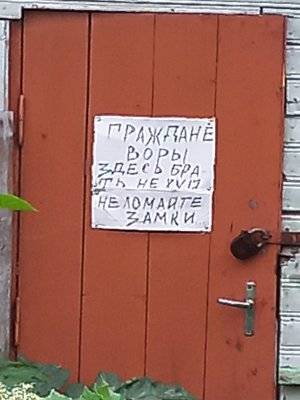 ГРАЖДАНЕ
ВОРЫ
ЗДЕСЬ БРА
ТЬ НЕ ХУ17
НЕ ЛОМАЙТЕ
ЗАМКИ...